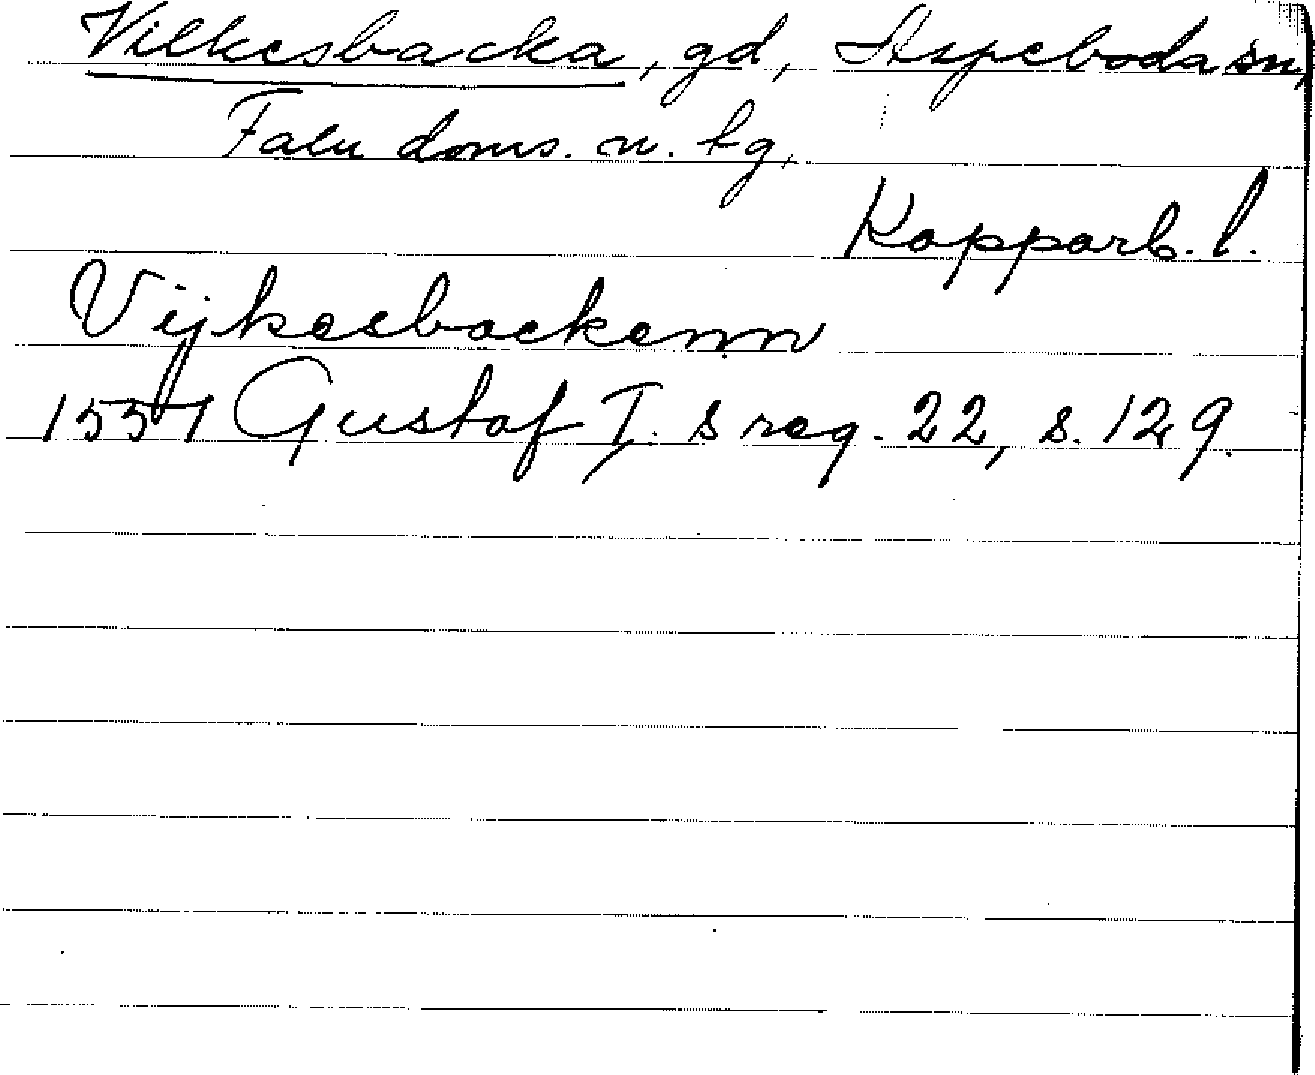 Vilkesbacka, gd, Aspeboda sn,
Falu doms. o. tg,
Kopparb. l.
Vijkesbackenn
1551 Gustaf I:s reg. 22, s. 129.